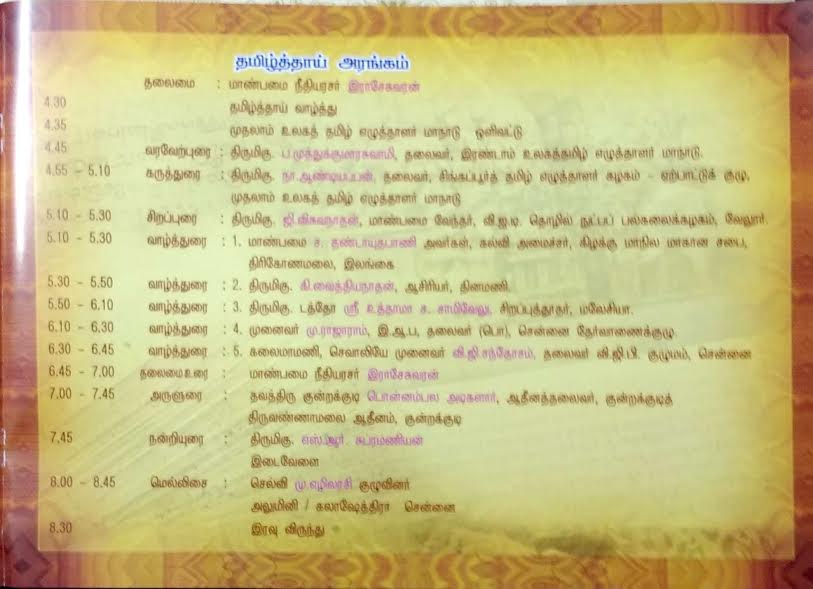 தமிழ்த்தாய் அரங்கம்
தலைமை : மாண்பமை நீதியரசர் இராசேசுவரன்
4.30 தமிழ்த்தாய் வாழ்த்து
4.35 முதலாம் உலகத் தமிழ் எழுத்தாளர் மாநாடு ஒளிவட்டு
4.45 வரவேற்புரை : திருமிகு. ப.முத்துக்குமாரசுவாமி, தலைவர், இரண்டாம் உலகத்தமிழ் எழுத்தாளர் மாநாடு.
4.55 - 5.10 கருத்துரை : திருமிகு. நா.ஆண்டியப்பன், தலைவர், சிங்கப்பூர்த் தமிழ் எழுத்தாளர் கழகம் - ஏற்பாட்டுக் குழு,
முதலாம் உலகத் தமிழ் எழுத்தாளர் மாநாடு
5.10 - 5.30 சிறப்புரை : திருமிகு. ஜி.விசுவநாதன், மாண்பமை வேந்தர், வி.ஐ.டி. தொழில் நுட்பப் பல்கலைக்கழகம், வேலூர்.
5.10 - 5.30 வாழ்த்துரை : 1. மாண்பமை ச. தண்டாயுதபாணி அவர்கள், கல்வி அமைச்சர், கிழக்கு மாநில மாகான சபை,
திரிகோணமலை, இலங்கை
5.30 - 5.50 வாழ்த்துரை : 2. திருமிகு. கி.வைத்தியநாதன், ஆசிரியர், தினமணி.
5.50 - 6.10 வாழ்த்துரை : 3. திருமிகு. டத்தோ ஸ்ரீ உத்தாமா ச. சாமிவேலு, சிறப்புத்தூதர், மலேசியா.
6.10 - 6.30 வாழ்த்துரை : 4. முனைவர் மு.ராஜாராம், இ.ஆ.ப, தலைவர் (பொ), சென்னை தேர்வாணைக்குழு.
6.30 - 6.45 வாழ்த்துரை : 5. கலைமாமணி, செவாலியே முனைவர் வி.ஜி.சந்தோசம், தலைவர் வி.ஜி.பி. குழுமம், சென்னை
6.45 - 7.00 தலைமை உரை : மாண்பமை நீதியரசர் இராசேசுவரன்
7.00 - 7.45 அருளுரை : தவத்திரு குன்றக்குடி பொன்னம்பல அடிகளார், ஆதீனத்தலைவர், குன்றக்குடித்
திருவண்ணாமலை ஆதீனம், குன்றக்குடி
7.45 நன்றியுரை : திருமிகு. எஸ்.ஆர். சுபரமணியன்
இடைவேளை
8.00 - 8.45 மெல்லிசை : செல்வி மு.எழிலரசி குழுவினர்
அலுமினி / கலாஷேத்திரா சென்னை
8.30 இரவு விருந்து